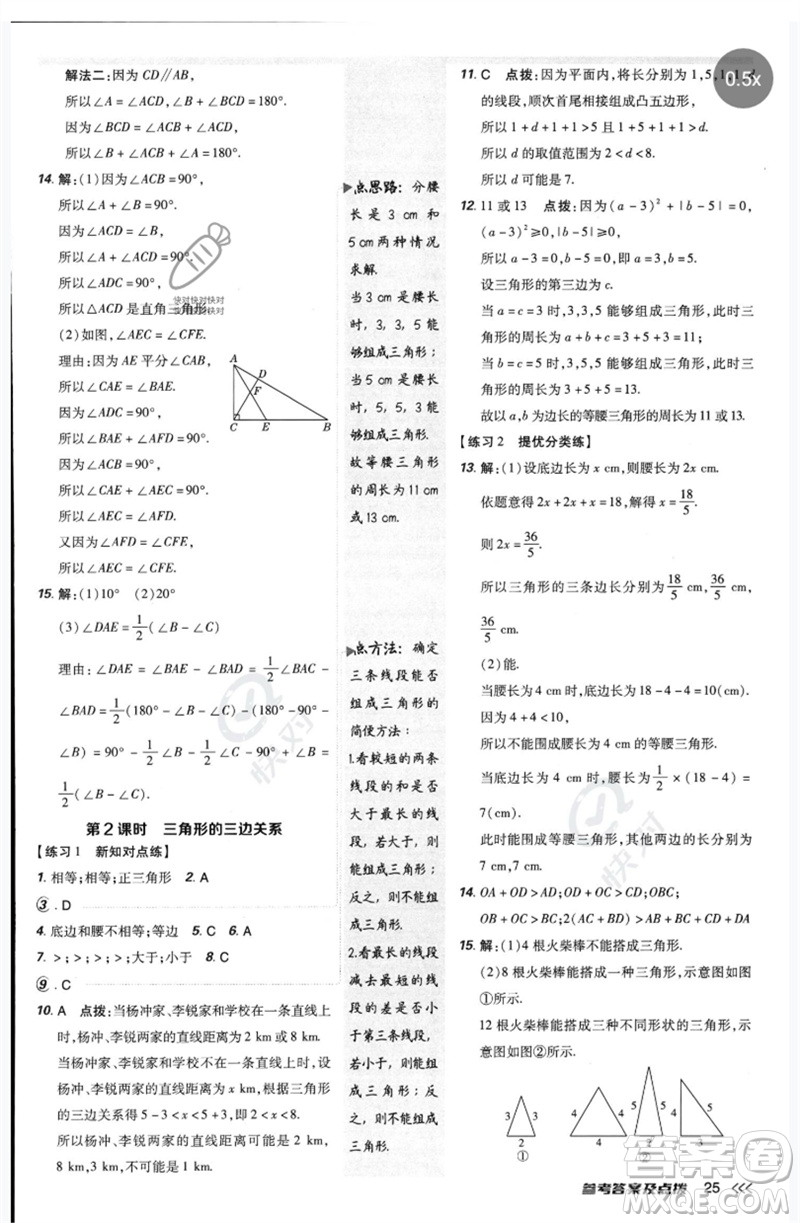 解法二:因为 CD∥AB,
所以∠A=∠ACD,∠B+∠BCD=180°.
因为∠BCD=∠ACB+∠ACD,
所以∠B+∠ACB+∠A=180°.
14. 解:(1)因为∠ACB=90°,
所以∠A+∠B=90°.
因为∠ACD=∠B,
所以∠A+∠ACD=90°.
所以∠ADC=90°.
所以△ACD 是直角三角形.
(2)如图,∠AEC=∠CFE.
理由:因为 AE 平分∠CAB,
所以∠CAE=∠BAE.
因为∠ACD=∠B,
所以∠BAE+∠B=∠CAE+∠ACD.
所以∠AEC=∠AFD.
又因为∠AFD=∠CFE,
所以∠AEC=∠CFE.
A
D
F
C E B
15. 解:(1)10° (2)20°
(3)∠DAE=1/2(∠B-∠C)
理由:∠DAE=∠BAE-∠BAD=1/2∠BAC
-∠BAD=1/2(180°-∠B-∠C)-(90°-
∠B)=90°-1/2∠B-1/2∠C-90°+∠B=
1/2(∠B-∠C)
第2课时 三角形的三边关系
【练习1 新知对点练】
1. 相等;相等;正三角形 2. A
3. D
4. 底边和腰不相等;等边 5. C 6. A
7. >;>;>;大于;小于 8. C
9. C
10. A 点拨:当杨冲家、李锐家和学校在一条直线上
时,杨冲、李锐两家的直线距离为 2 km或 8 km.
当杨冲家、李锐家和学校不在一条直线上时,设
杨冲、李锐两家的直线距离为 x km,根据三角形
的三边关系得 5-3<x<5+3,即 2<x<8.
所以杨冲、李锐两家的直线距离可能为 2 km,
8 km,3 km,不可能是 1 km.
点思路:分腰
长是 3 cm 和
5 cm 两种情况
求解.
当 3 cm 是腰长
时,3,3,5 能
够组成三角形;
当 5 cm 是腰长
时,5,5,3 能
够组成三角形.
故等腰三角形
的周长为 11 cm
或 13 cm.
点方法:确定
三条线段能否
组成三角形的
简便方法:
1.看较短的两条
线段的和是否
大于最长的线
段,如果大于,
则能组成三角形;
反之,则不能组
成三角形.
2.看最长的线段
减去最短的线段
的差是否小
于第三条线段,
若小于,则能组
成三角形;反
之,则不能组成
三角形.
11. C 点拨:因为平面内,将长分别为 1,5,1,1,d
的线段,顺次首尾相接组成凸五边形,
所以 1+d+1+1>5 且 1+5+1+1>d.
所以 d 的取值范围为 2<d<8.
所以 d 可能是 7.
12. 11 或 13 点拨:因为(a-3)²+|b-5|=0,
(a-3)²≥0,|b-5|≥0,
所以 a-3=0,b-5=0,即 a=3,b=5.
设三角形的第三边为 c.
当 a=c=3 时,3,3,5 能够组成三角形,此时三
角形的周长为 a+b+c=3+5+3=11;
当 b=c=5 时,3,5,5 能够组成三角形,此时三
角形的周长为 3+5+5=13.
故以 a,b 为边长的等腰三角形的周长为 11 或 13.
【练习2 提优分类练】
13. 解:(1)设底边长为 x cm,则腰长为 2x cm.
依题意得 2x+2x+x=18,解得 x=18/5.
则 2x=36/5.
所以三角形的三条边长分别为 18/5 cm,36/5 cm,
36/5 cm.
(2)能.
当腰长为 4 cm 时,底边长为 18-4-4=10(cm).
因为 4+4<10,
所以不能围成腰长为 4 cm 的等腰三角形.
当底边长为 4 cm 时,腰长为 1/2×(18-4)=
7(cm).
此时能围成等腰三角形,其他两边的长分别为
7 cm,7 cm.
14. OA+OD>AD;OD+OC>CD;OB+OC>BC;
OB+OC>BC+CD+DA
15. 解:(1)4 根火柴棒不能搭成三角形.
(2)8 根火柴棒能搭成一种三角形,示意图如图
①所示.
12 根火柴棒能搭成三种不同形状的三角形,示
意图如图②所示.
3 3
2
①
4 4
4
5 5
2
4 5
3
②
参考答案及点拨 25 <<<
0.5x
快对快对快对
快对
快对
答案圈